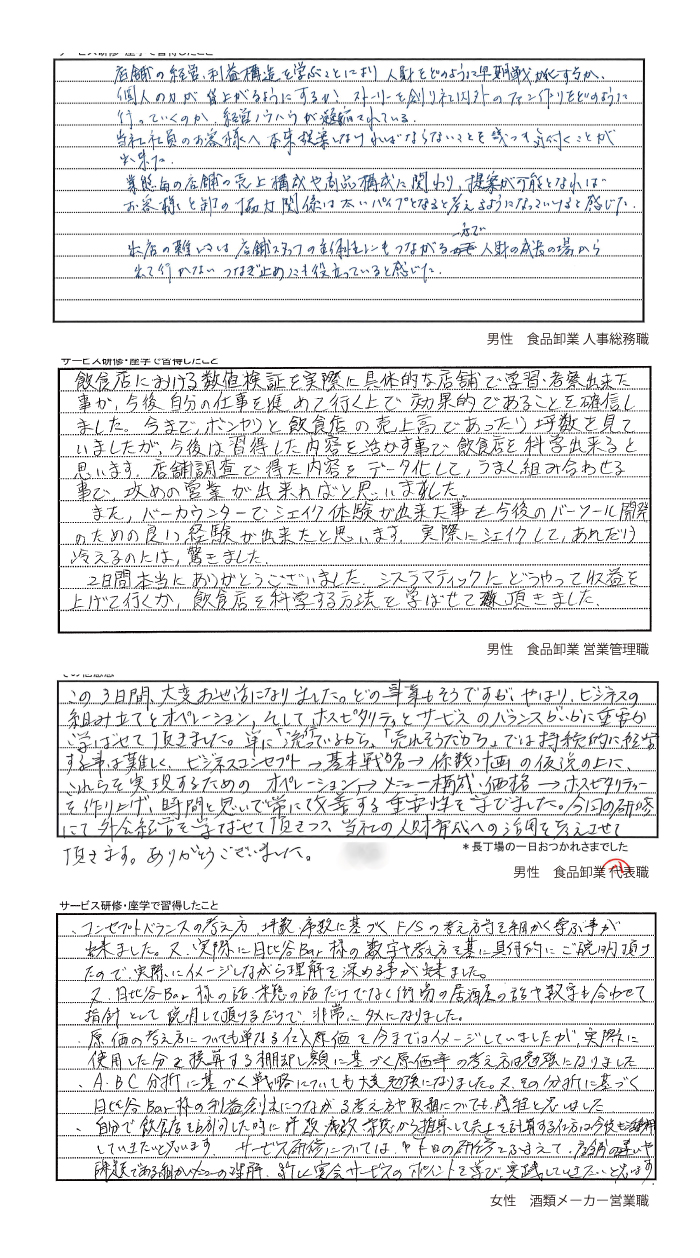 サービス研修・座学で習得したこと
店舗の経営、利益構造を学ぶことにより人財をどのように早期戦力化するか、
個人の力が皆上がるようにするか ストーリーを創り社内外のファン作りをどのように
行っていくのか、経営ノウハウが凝縮されている。
当社社員のお客様へ本来提案しなければならないことを幾つも気付くことが
出来た。
業態毎の店舗の売上構成や商品構成に関わり、提案が可能となれば
お客様と卸の協力関係は太いパイプとなると考えるようになっていけると感じた。
出店の難しさは店舗スタッフの主体性にもつながる 一方で 人財の成長の場から
出て行かない つなぎ止めにも役立っていると感じた。
男性 食品卸業 人事総務職
サービス研修・座学で習得したこと
飲食店における数値検証を実際に具体的な店舗で学習・考察出来た
事が、今後自分の仕事を進めて行く上で効果的であることを確信し
ました。今まで、ボンヤリと飲食店の売上高であったり坪数を見て
いましたが、今後は習得した内容を活かす事で飲食店を科学出来ると
思います。店舗調査で得た内容をデータ化して、うまく組み合わせる
事で、攻めの営業が出来ればと思いました。
また、バーカウンターでシェイク体験が出来た事も今後のバーツール開発
のための良い経験が出来たと思います。実際にシェイクして、あれだけ
冷えるのには、驚きました。
2日間本当にありがとうございました。システマティックにどうやって収益を
上げて行くか、飲食店を科学する方法を学ばせて頂きました。
男性 食品卸業 営業管理職
その他感想
この3日間、大変お世話になりました。どの事業もそうですが、やはり、ビジネスの
組み立てとオペレーション、そしてホスピタリティとサービスのバランスがいかに重要か
学ばせて頂きました。単に「流行っているから」「売れそうだから」では持続的に経営
する事は難しく、ビジネスコンセプト→基本戦略→係数計画の仮説の上に、
これらを実現するための オペレーション→メニュー構成、価格→ホスピタリティー
を作り上げ、時間と思いで常に改善する重要性を学びました。今回の研修
にて外食経営を学ばせて頂きつつ、当社の人財育成への活用を考えさせて
頂きます。ありがとうございました。
*長丁場の一日おつかれさまでした
男性 食品卸業 代表職
サービス研修・座学で習得したこと
・コンセプトバランスの考え方 坪数、席数に基づく F/Sの考え方等を細かく学ぶ事が
出来ました。又、実際に日比谷Bar様の数字や考え方を基に具体的にご説明頂け
たので、実際にイメージしながら理解を深める事が出来ました。
又、日比谷Bar様の話、業態の話だけでなく街場の居酒屋の話や数字も合わせて
指針として説明して頂けるだけで、非常に為になりました。
・原価の考え方についても単なる仕入原価を今まではイメージしていましたが、実際に
使用した分を換算する棚卸し額に基づく原価率の考え方は勉強になりました
・A.B.C分析に基づく戦略についても大変勉強になりました。又、その分析に基づく
日比谷Bar様の利益創出につながる考え方や取組についても、成程と思いました
・自分で飲食店を訪問した時に坪数、席数、客数から推察して売上を計算する仕方は今後も活用
していきたいと思います サービス研修については、本日の研修をふまえて、店舗の違いや
課題である細かいメニューの理解、新しい実会サービスのポイントを学び、実践していきたいと思います
女性 酒類メーカー営業職